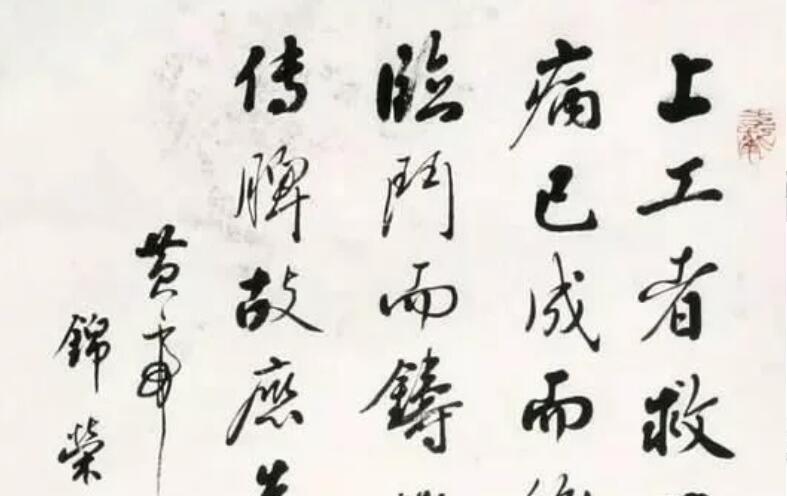 上工者救
病已成而
臨鬥而鑄
傳脾故應
黄帝
錦榮